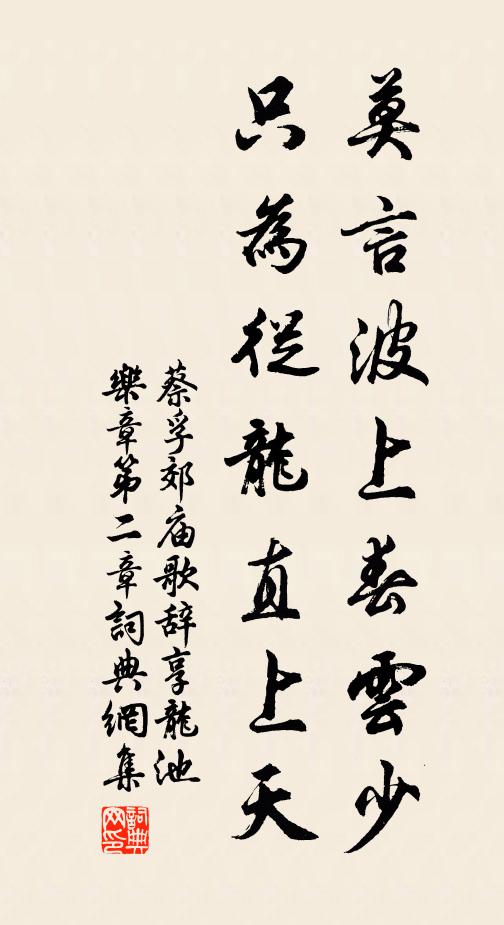 莫言波上春雲少
只為從龍直上天
蔡孚郊庙歌辞享龍池
樂章第二章詞典網集
詞典网印